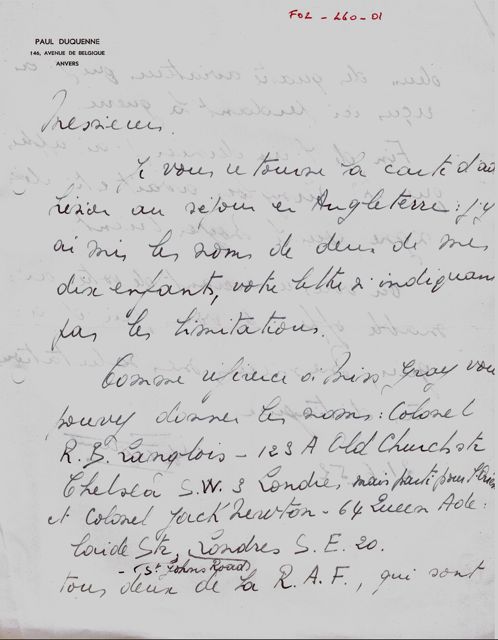 FOL - L60 - 01
PAUL DUQUENNE
146, AVENUE DE BELGIQUE
ANVERS
Messieurs.
Je vous retourne la carte d'ad
hésion au séjour en Angleterre : j'y
ai mis les noms de deux de mes
dix enfants, votre lettre n'indiquant
pas les limitations.
Comme référence à Miss Gray vous
pouvez donner les noms : Colonel
R. B. Langlois - 123 A Old Church str
Chelsea S.W. 3 Londres, mais parti pour
et Colonel Jack Newton - 64 Queen Ade-
laide Str, Londres S.E. 20.
- (St Johns Road)
tous deux de la R.A.F., qui sont